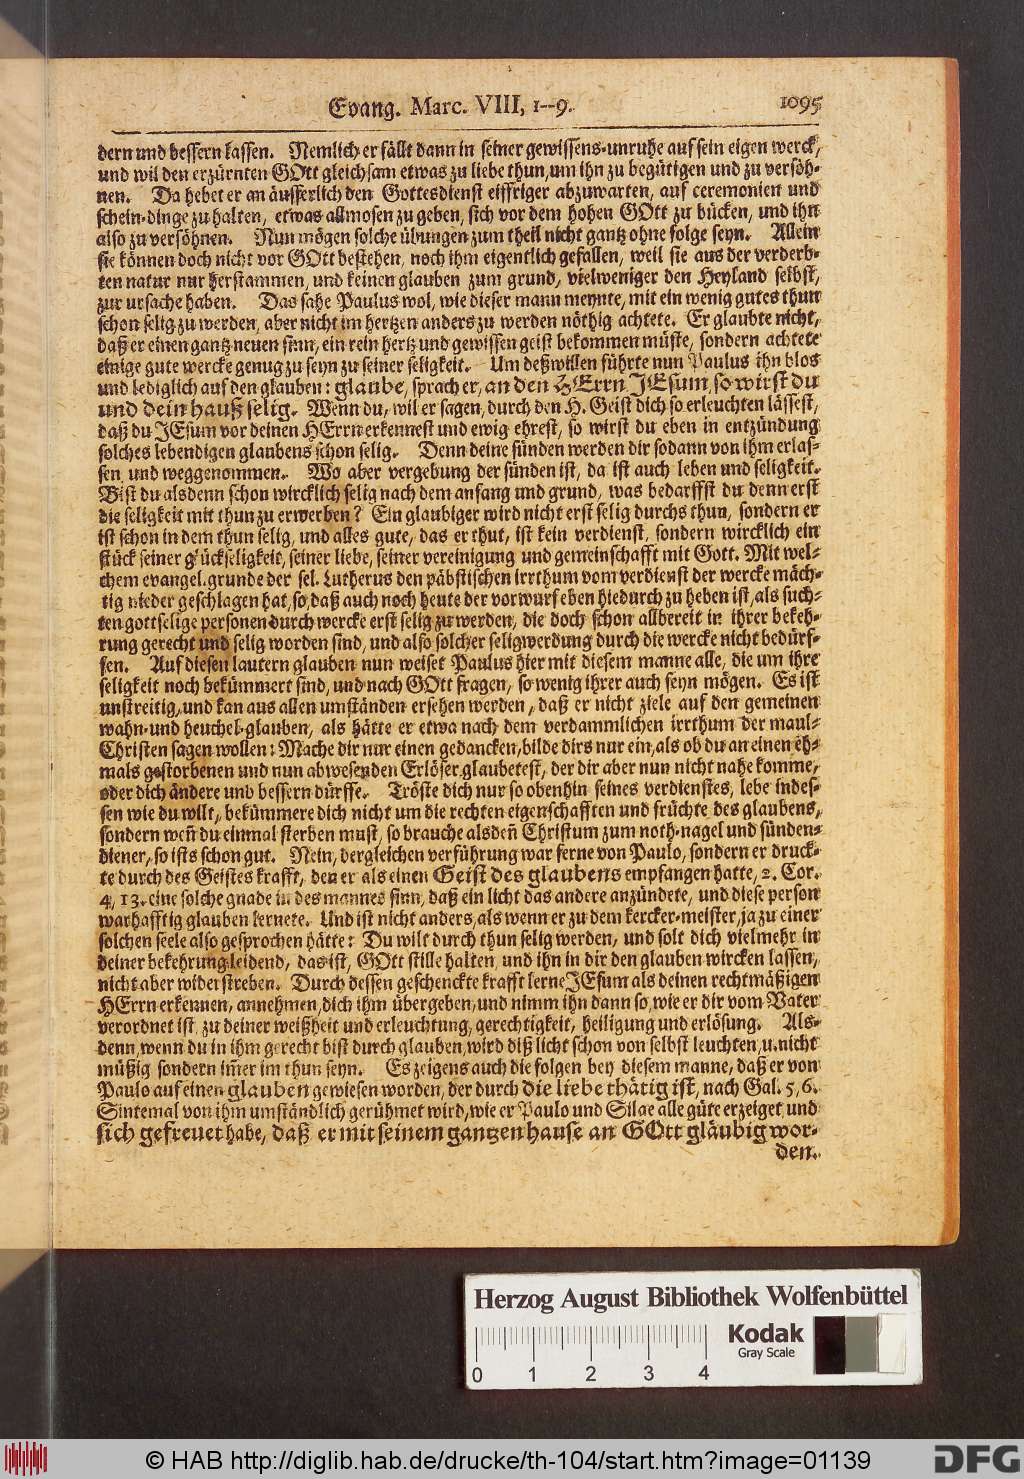 Evang. Marc. VIII, 1--9. 1095
dern und bessern lassen. Nemlich er fällt dann in seiner gewissens-unruhe auf sein eigen werck,
und wil den erzürnten GOtt gleichsam etwas zu liebe thun, um ihn zu begütigen und zu versöh-
nen. Da hebet er an äusserlich den Gottesdienst eiffriger abzuwarten, auf ceremonien und
schein-dinge zu halten, etwas allmosen zu geben, sich vor dem hohen GOtt zu bücken, und ihn
also zu versöhnen. Nun mögen solche übungen zum theil nicht gantz ohne folge seyn. Allein
sie können doch nicht vor GOtt bestehen, noch ihm eigentlich gefallen, weil sie aus der verderb-
ten natur nur herstammen, und keinen glauben zum grund, vielweniger den Heyland selbst,
zur ursache haben. Das sahe Paulus wol, wie dieser mann meynte, mit ein wenig gutes thun
schon selig zu werden, aber nicht im hertzen anders zu werden nöthig achtete. Er glaubte nicht,
daß er einen gantz neuen sinn, ein rein hertz und gewissen geist bekommen müste, sondern achtete
einige gute wercke genug zu seyn zu seiner seligkeit. Um deßwillen führte nun Paulus ihn blos
und lediglich auf den glauben: glaube, sprach er, an den HErrn JEsum, so wirst du
und dein hauß selig. Wenn du, wil er sagen, durch den H. Geist dich so erleuchten lässest,
daß du JEsum vor deinen HErrn erkennest und ewig ehrest, so wirst du eben in entzündung
solches lebendigen glaubens schon selig. Denn deine sünden werden dir sodann von ihm erlas-
sen und weggenommen. Wo aber vergebung der sünden ist, da ist auch leben und seligkeit.
Bist du alsdenn schon wircklich selig nach dem anfang und grund, was bedarffst du denn erst
die seligkeit mit thun zu erwerben? Ein glaubiger wird nicht erst selig durchs thun, sondern er
ist schon in dem thun selig, und alles gute, das er thut, ist kein verdienst, sondern wircklich ein
stück seiner glückseligkeit, seiner liebe, seiner vereinigung und gemeinschafft mit Gott. Mit wel-
chem evangel. grunde der sel. Lutherus den päbstischen irrthum vom verdienst der wercke mäch-
tig nieder geschlagen hat, so, daß auch noch heute der vorwurf eben hiedurch zu heben ist, als such-
ten gottselige personen durch wercke erst selig zu werden, die doch schon allbereit in ihrer bekeh-
rung gerecht und selig worden sind, und also solcher seligwerdung durch die wercke nicht bedürf-
fen. Auf diesen lautern glauben nun weiset Paulus hier mit diesem manne alle, die um ihre
seligkeit noch bekümmert sind, und nach GOtt fragen, so wenig ihrer auch seyn mögen. Es ist
unstreitig, und kan aus allen umständen ersehen werden, daß er nicht ziele auf den gemeinen
wahn- und heuchel-glauben, als hätte er etwa nach dem verdammlichen irrthum der maul-
Christen sagen wollen: Mache dir nur einen gedancken, bilde dirs nur ein, als ob du an einen eh-
mals gestorbenen und nun abwesenden Erlöser glaubetest, der dir aber nun nicht nahe komme,
oder dich ändere und bessern dürffe. Tröste dich nur so obenhin seines verdienstes, lebe indes-
sen wie du wilt, bekümmere dich nicht um die rechten eigenschafften und früchte des glaubens,
sondern weñ du einmal sterben must, so brauche alsdeñ Christum zum noth-nagel und sünden-
diener, so ists schon gut. Nein, dergleichen verführung war ferne von Paulo, sondern er druck-
te durch des Geistes krafft, den er als einen Geist des glaubens empfangen hatte, 2. Cor.
4, 13. eine solche gnade in des mannes sinn, daß ein licht das andere anzündete, und diese person
warhafftig glauben lernete. Und ist nicht anders, als wenn er zu dem kercker-meister, ja zu einer
solchen seele also gesprochen hätte: Du wilt durch thun selig werden, und solt dich vielmehr in
deiner bekehrung leidend, das ist, GOtt stille halten, und ihn in dir den glauben wircken lassen,
nicht aber widerstreben. Durch dessen geschenckte krafft lerne JEsum als deinen rechtmäßigen
HErrn erkennen, annehmen, dich ihm übergeben, und nimm ihn dann so, wie er dir vom Vater
verordnet ist, zu deiner weißheit und erleuchtung, gerechtigkeit, heiligung und erlösung. Als-
denn, wenn du in ihm gerecht bist durch glauben, wird diß licht schon von selbst leuchten, u. nicht
müßig sondern im̃er im thun seyn. Es zeigens auch die folgen bey diesem manne, daß er von
Paulo auf einen glauben gewiesen worden, der durch die liebe thätig ist, nach Gal. 5, 6.
Sintemal von ihm umständlich gerühmet wird, wie er Paulo und Silae alle güte erzeiget, und
sich gefreuet habe, daß er mit seinem gantzen hause an GOtt gläubig wor-
den.
Herzog August Bibliothek Wolfenbüttel
0 1 2 3 4
Kodak
Gray Scale
© HAB http://diglib.hab.de/drucke/th-104/start.htm?image=01139
DFG